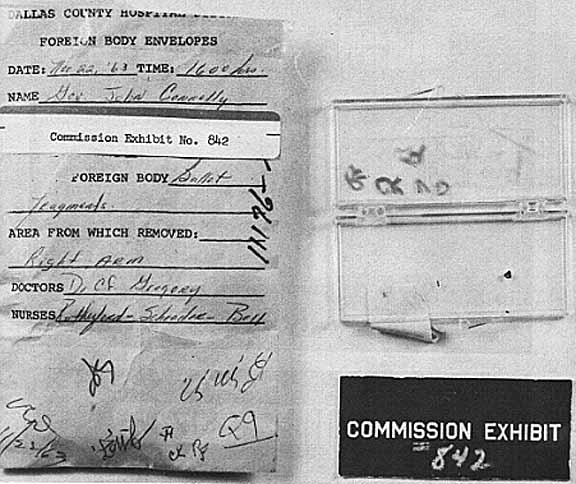 DALLAS COUNTY HOSPITAL
FOREIGN BODY ENVELOPES
DATE: Nov 22, '63 TIME: 1600 hrs.
NAME Gov. John Connally
Commission Exhibit No. 842
FOREIGN BODY Bullet
fragments.
AREA FROM WHICH REMOVED:
Right Arm
DOCTORS Dr. CF Gregory
NURSES Rutherford - Schrader - Bell
Q9
COMMISSION EXHIBIT
842